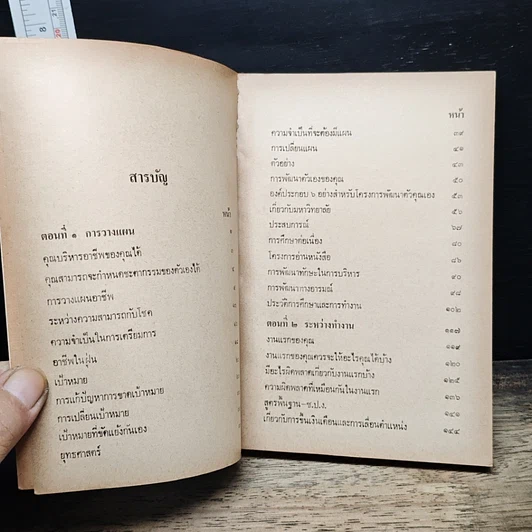 สารบัญ
หน้า
ตอนที่ ๑ การวางแผน
คุณบริหารอาชีพของคุณได้
คุณสามารถจะกำหนดชะตากรรมของตัวเองได้
การวางแผนอาชีพ
ระหว่างความสามารถกับโชค
ความจำเป็นในการเตรียมการ
อาชีพในฝัน
เป้าหมาย
การแก้ปัญหาการขาดเป้าหมาย
การเปลี่ยนเป้าหมาย
เป้าหมายที่ขัดแย้งกันเอง
ยุทธศาสตร์
หน้า
ความจำเป็นที่จะต้องมีแผน ๓๙
การเปลี่ยนแผน ๔๑
ตัวอย่าง ๔๓
การพัฒนาตัวเองของคุณ ๕๐
องค์ประกอบ ๖ อย่างสำหรับโครงการพัฒนาตัวคุณเอง ๕๓
เกี่ยวกับมหาวิทยาลัย ๕๖
ประสบการณ์ ๖๗
การศึกษาต่อเนื่อง ๘๐
โครงการอ่านหนังสือ ๘๖
การพัฒนาทักษะในการบริหาร ๙๔
การพัฒนาทางอารมณ์ ๙๘
ประวัติการศึกษาและการทำงาน ๑๐๒
ตอนที่ ๒ ระหว่างทำงาน ๑๑๗
งานแรกของคุณ ๑๑๙
งานแรกของคุณควรจะให้อะไรคุณได้บ้าง ๑๒๐
มีอะไรผิดพลาดเกี่ยวกับงานแรกบ้าง ๑๒๕
ความผิดพลาดที่เหมือนกันในงานแรก ๑๓๕
สูตรพื้นฐาน-ช.ป.ง. ๑๔๑
เกี่ยวกับการขึ้นเงินเดือนและการเลื่อนตำแหน่ง ๑๔๔